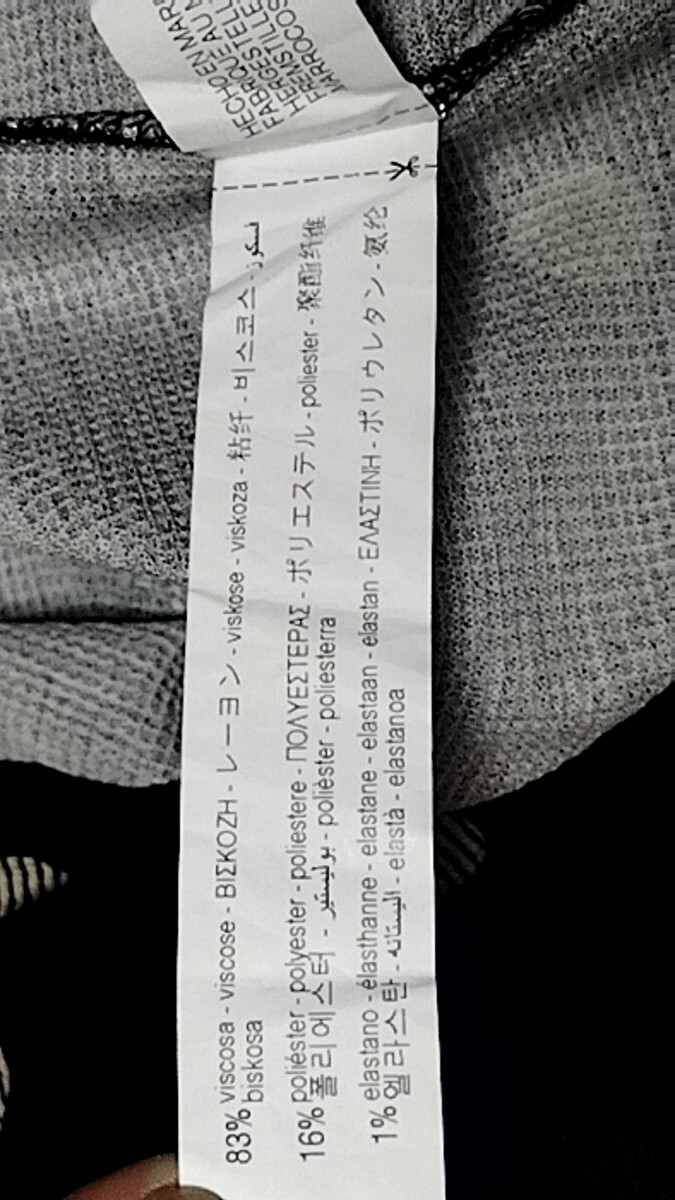 HECHO EN MAR
FABRIQUÉ AU
HERGESTELL
FRENSTILLE
MARROCOS
83% viscosa - viscose - ΒΙΣΚΟΖΗ - レーヨン - viskose - viskoza - 粘纤 - 비스코스 -
biskosa
16% poliéster - polyester - poliestere - ΠΟΛΥΕΣΤΕΡΑΣ - ポリエステル - poliester - 聚酯纤维
폴리에스터 - بوليستير - polièster - poliesterra
1% elastano - élasthanne - elastane - elastaan - elastan - ΕΛΑΣΤΙΝΗ - ポリウレタン - 氨纶
엘라스탄 - اليستانه - elastà - elastanoa